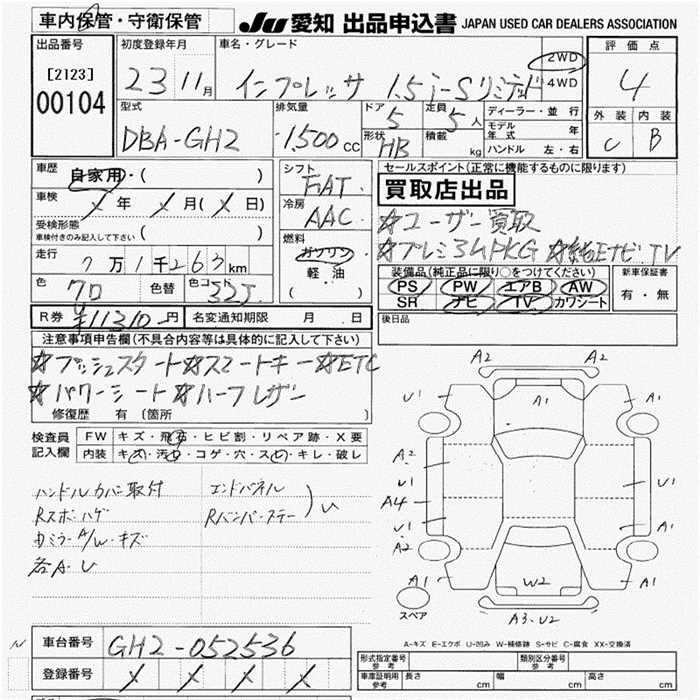 車内保管・守衛保管
JU 愛知 出品申込書 JAPAN USED CAR DEALERS ASSOCIATION
出品番号
[2123]
00104
初度登録年月
23 11月
車名・グレード
インプレッサ 1.5 i-Sリミテッド
2WD
4WD
評価点
4
外装 内装
C B
型式
DBA-GH2
排気量
1,500 cc
ドア 5
定員 5 人
形状 HB
積載 kg
ディーラー・並行
モデル年式 年
ハンドル 左・右
車歴 自家用・( )
車検 年 月( 日)
受検形態
車検付きのみ記入して下さい ( )
走行
7万1千263km
色 クロ 色替 色コード 32J
シフト
FAT
冷房
AAC
燃料
ガソリン
軽油
( ・ )
セールスポイント(正常に機能するものに限ります)
買取店出品
☆ユーザー買取
☆プレミアムPKG ☆純正ナビTV
装備品(純正品に限り○をつけてください)
PS PW エアB AW
SR ナビ TV カワシート
新車保証書
有・無
R券 ¥11310 円 名変通知期限 月 日
後日品
注意事項申告欄(不具合内容等は具体的に記入して下さい)
☆プッシュスタート ☆スマートキー ☆ETC
☆パワーシート ☆ハーフレザー
修復歴 有 〔箇所 〕
検査員記入欄
FW キズ・飛石・ヒビ割・リペア跡・X要
内装 キズ・汚れ・コゲ・穴・スレ・キレ・破レ
ハンドルカバー取付
Rスポ・ハゲ
A/W・キズ
各A・U
エンドパネル
Rバンパーステー
) U
A2 A2
U1 A1 A1
A2
U1 U1
A4
U1 A1
A2
A1 W2 A1
スペア
A3、U2
A-キズ E-エクボ U-凹み W-補修跡 S-サビ C-腐食 XX-交換済
N 車台番号 GH2-052536
登録番号
形式指定番号 参考
類別区分番号 参考
車庫証明用 参考 長さ cm 幅 cm 高さ cm